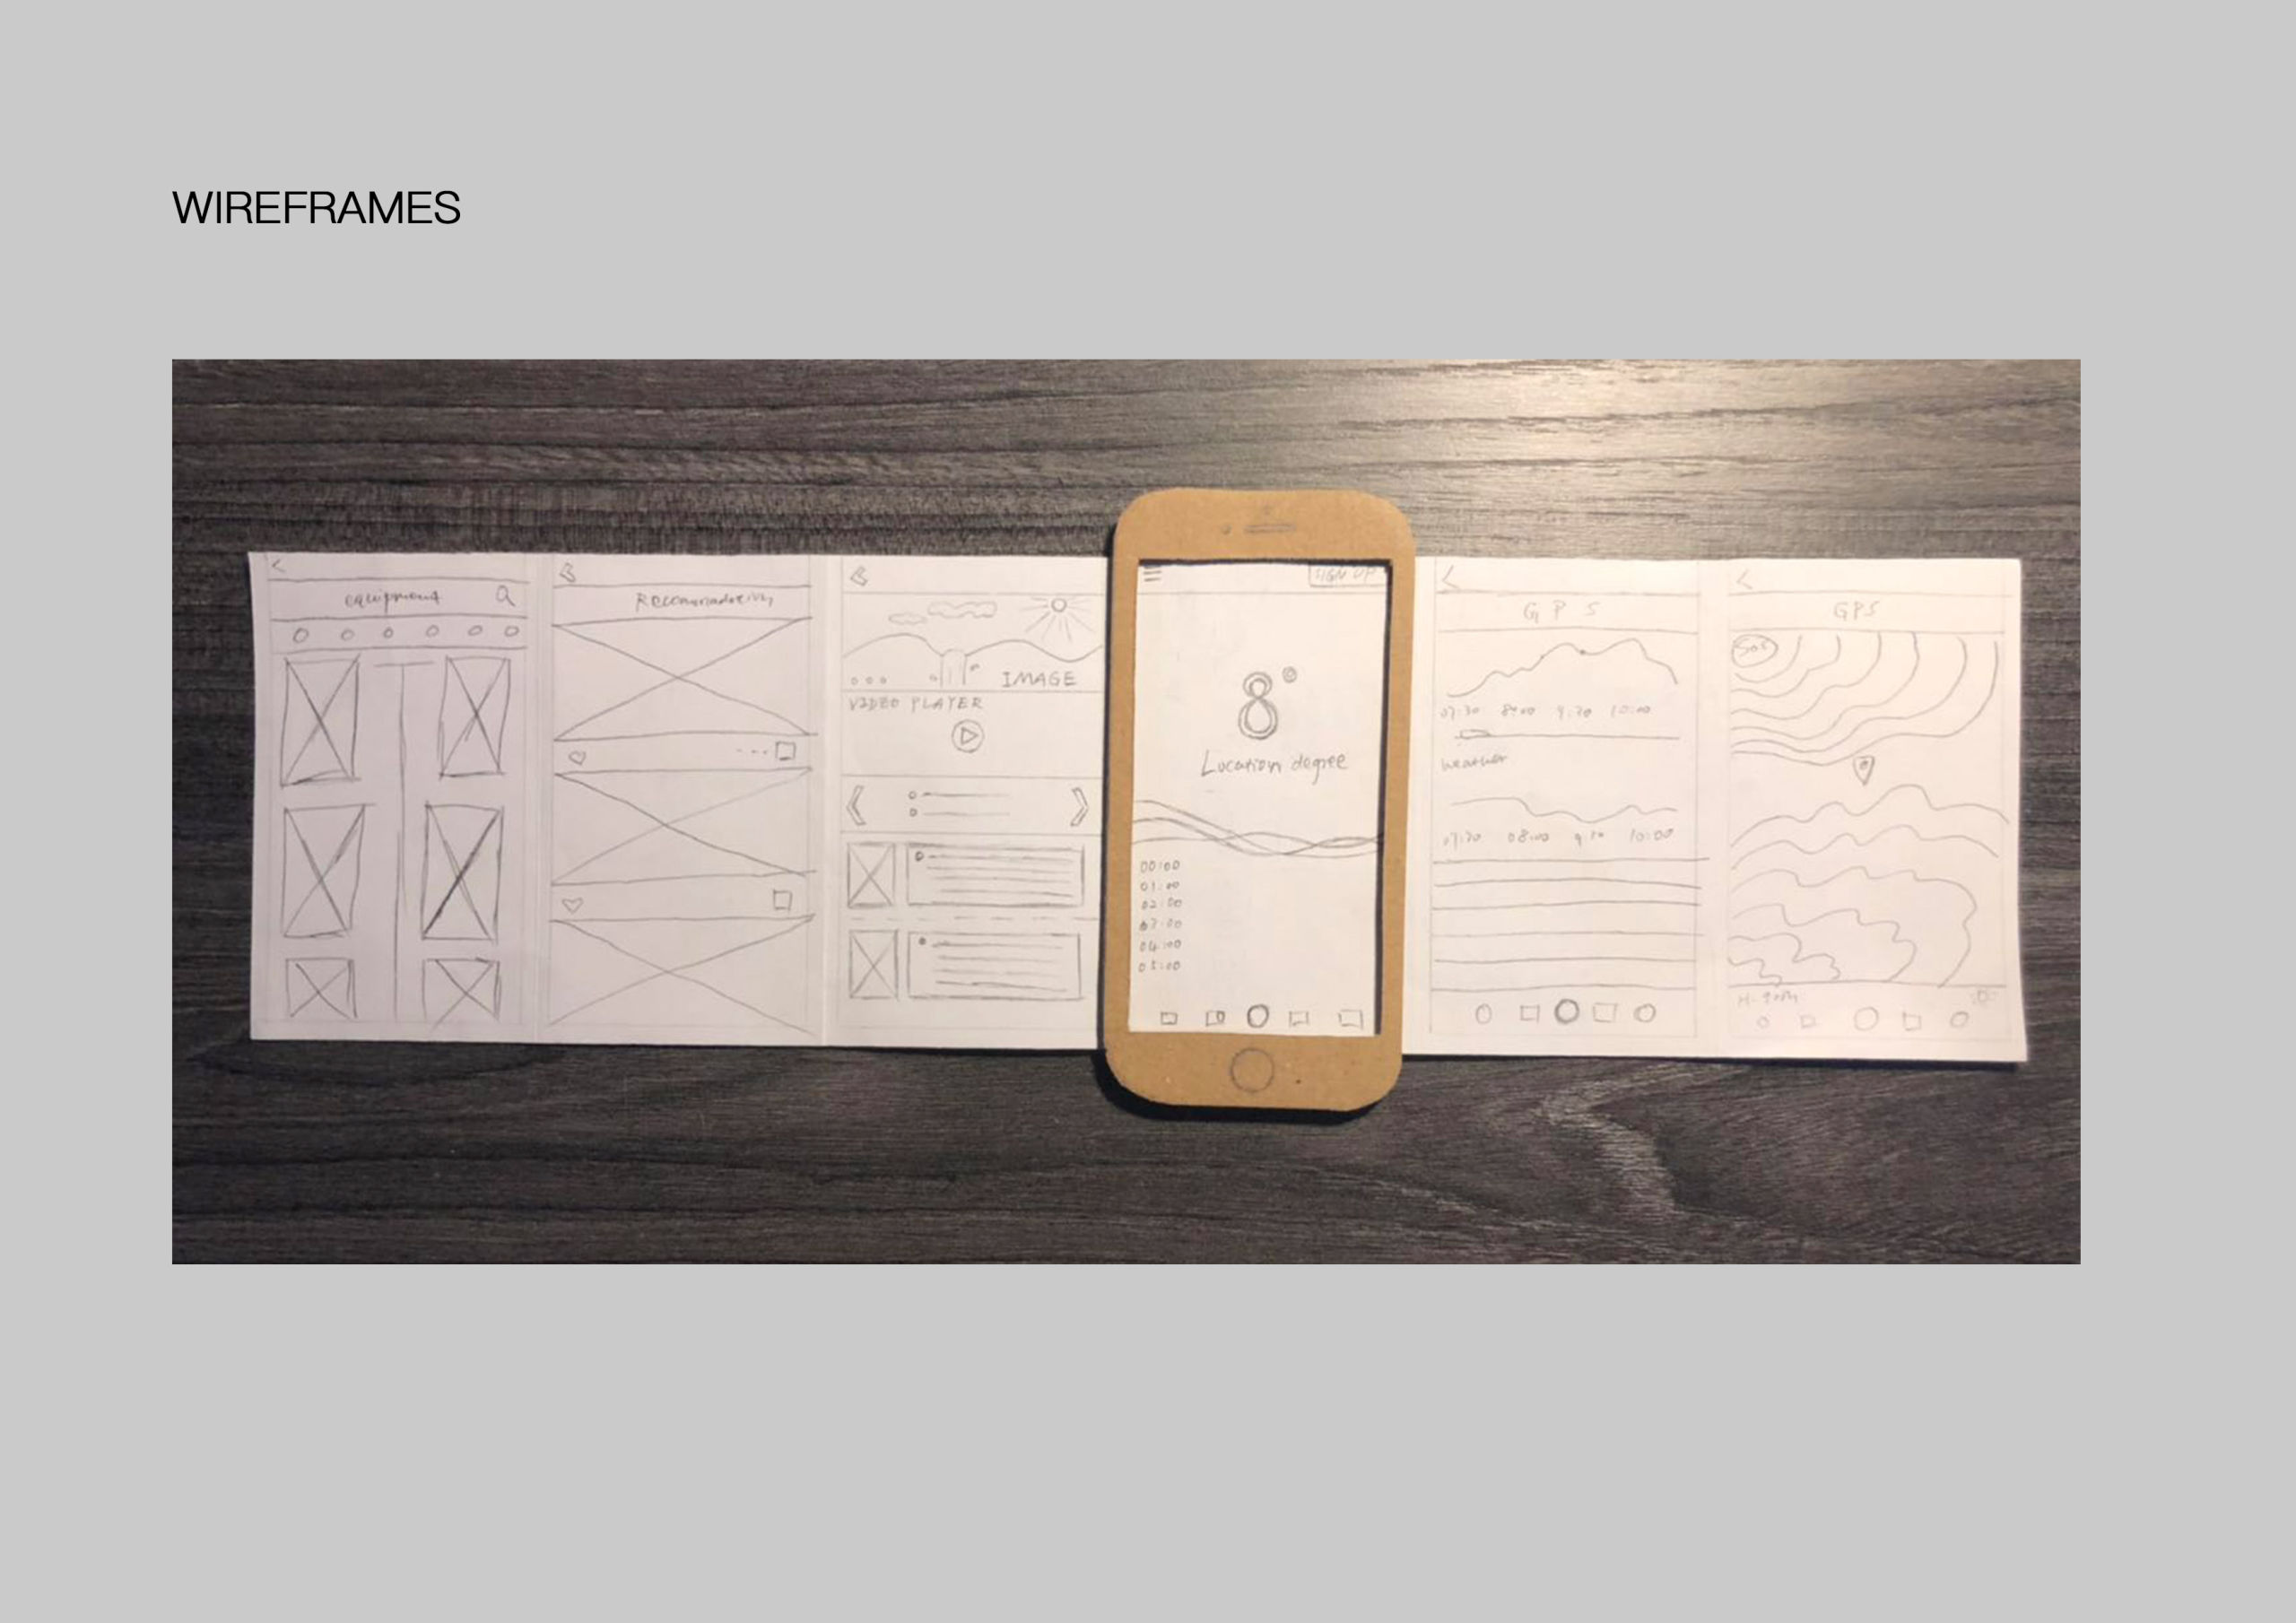 WIREFRAMES
equipment
IMAGE
VIDEO PLAYER
SIGN UP
8°
Location degree
00:00
01:00
02:00
03:00
04:00
05:00
GPS
07:30 8:00 9:30 10:00
weather
07:30 08:00 9:30 10:00
GPS
SOS